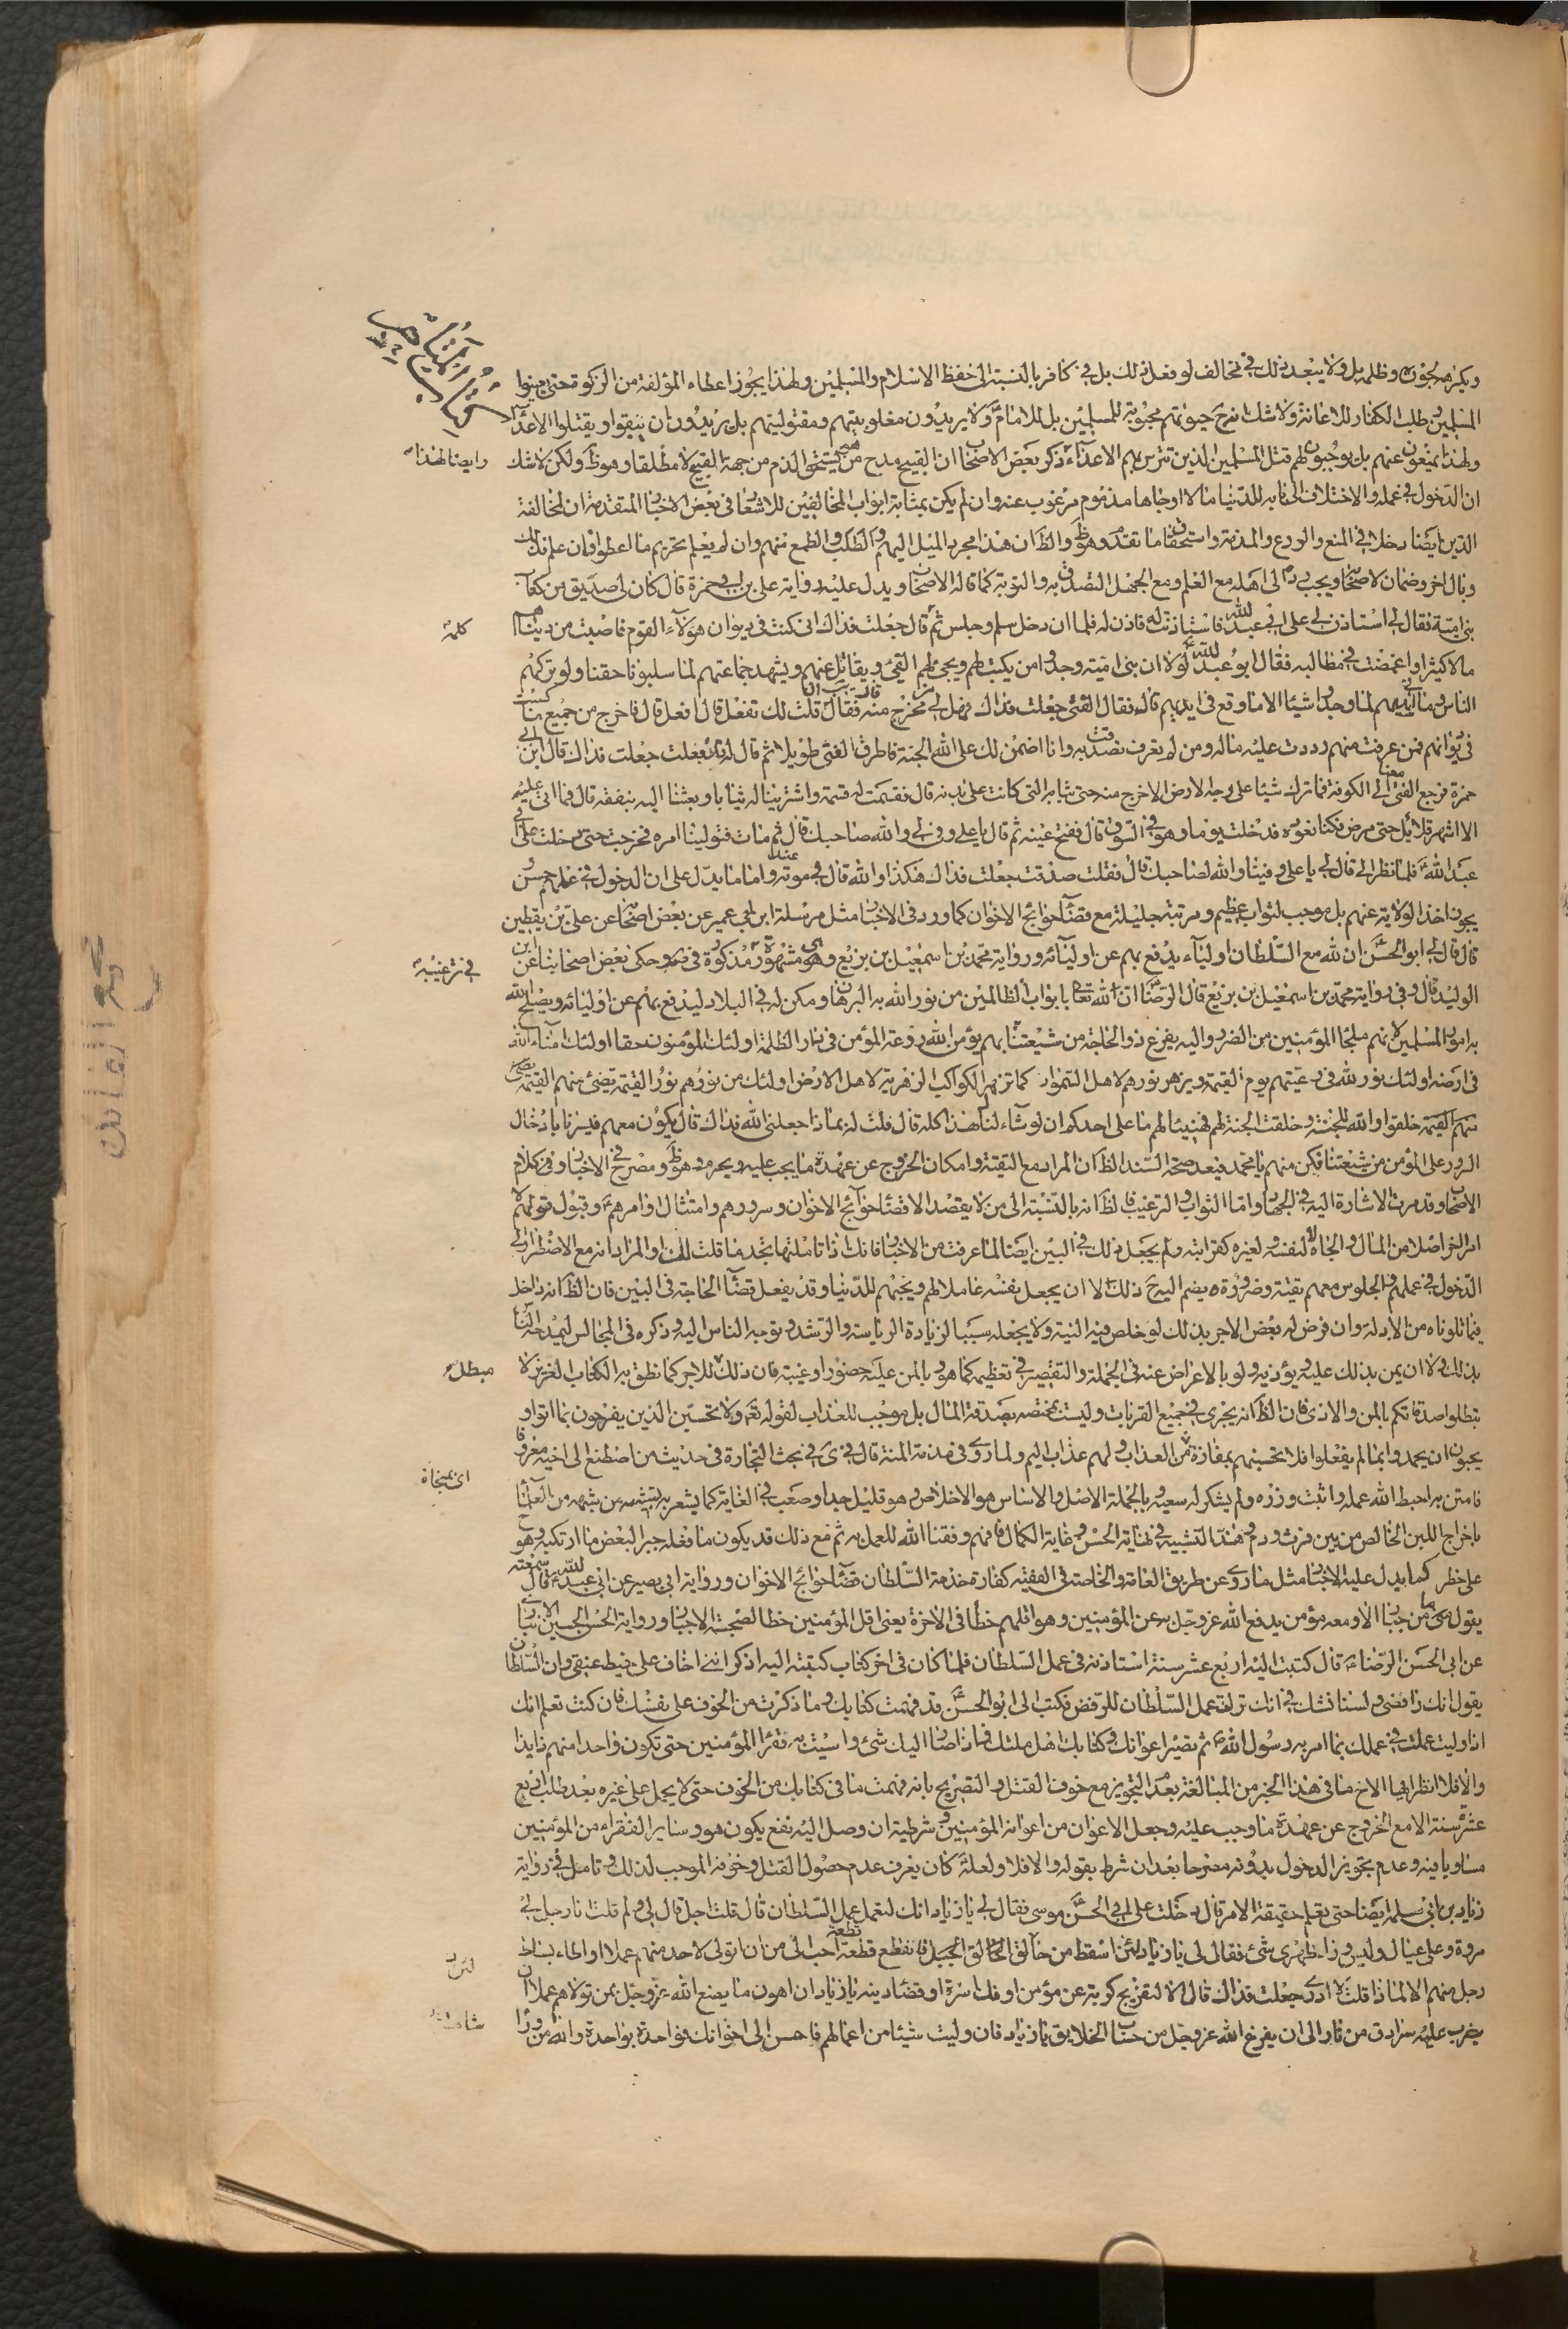 ويكره لجوره وظلمه بل ولا يبعد ذلك في مخالف لو فعل ذلك بل في كافر بالنسبة الى حفظ الاسلام والمسلمين ولهذا يجوز اعطاء المؤلفة من الزكوة حتى
المسلمين طلب الكفار للاعانة ولا شك ان حيوتهم محبوبة للمسلمين بل للامام ولا يريدون مغلوبيتهم ومقتوليتهم بل يريدون ان يبقوا ويقتلوا الاعداء
ولهذا يمنعون عنهم بل يوجبون لهم قتل المسلمين الذين تترس بهم الاعداء ذكر بعض الاصحاب ان القبيح مدح من يستحق الذم من جهة القبح لا مطلقا وهو ظ ولكن لا شك
ايضا لهذا
ان الدخول في عمله والاختلاف الى بابه للدنيا مالا او جاها مذموم مرغوب عنه وان لم يكن بمثابة ابواب المخالفين للاشعار في بعض الاخبار المتقدمة ان لمخالفة
الدين ايضا دخلا في المنع والردع والمذمة واستحقاق ما تقدم وهو ظ والظ ان هذا مجرد الميل اليهم والطلب والطمع منهم وان لم يعلم تحريم ما اعطوا فان علم ذلك
وبال اخر وضمان لاصحابها ويجب رده الى اهله مع العلم ومع الجهل التصدق به والتوبة كما قاله الاصحاب ويدل عليه رواية علي بن ابي حمزة قال كان لي صديق من كتاب
بني امية فقال لي استاذن لي على ابي عبد الله فاستاذنت له فاذن له فلما ان دخل سلم وجلس ثم قال جعلت فداك اني كنت في ديوان هؤلاء القوم فاصبت من دنياهم
كلمة
مالا كثيرا واغمضت في مطالبه فقال ابو عبد الله ع لولا ان بني امية وجدوا من يكتب لهم ويجبي لهم الفيء ويقاتل عنهم ويشهد جماعتهم لما سلبونا حقنا ولو تركهم
الناس وما في ايديهم لما وجدوا شيئا الا ما وقع في ايديهم قال فقال الفتى جعلت فداك فهل لي مخرج منه فقال ان قلت لك تفعل قال افعل قال فاخرج من جميع ما كسبت
في ديوانهم فمن عرفت منهم رددت عليه ماله ومن لم تعرف تصدقت به وانا اضمن لك على الله الجنة فاطرق الفتى طويلا ثم قال له قد فعلت جعلت فداك قال ابن ابي
حمزة فرجع الفتى معنا الى الكوفة فما ترك شيئا على وجه الارض الا خرج منه حتى ثيابه التي كانت على بدنه قال فقسمت له قسمة واشترينا له ثيابا وبعثنا اليه بنفقة قال فما اتى عليه
الا اشهر قلائل حتى مرض فكنا نعوده فدخلت يوما وهو في السوق قال ففتح عينيه ثم قال يا علي وفى لي والله صاحبك قال ثم مات فتولينا امره فخرجت حتى دخلت على ابي
عبد الله ع فلما نظر الي قال لي يا علي وفينا والله لصاحبك قال فقلت صدقت جعلت فداك هكذا والله قال لي عند موته واما ما يدل على ان الدخول في عملهم حسن
يجوز اخذ الولاية عنهم بل موجب لثواب عظيم ومرتبة جليلة مع قضاء حوائج الاخوان كما ورد في الاخبار مثل مرسلة ابن ابي عمير عن بعض اصحابنا عن علي بن يقطين
قال قال لي ابو الحسن ع ان لله مع السلطان اولياء يدفع بهم عن اوليائه ورواية محمد بن اسمعيل بن بزيع وهي مشهورة مذكورة في وحكى بعض اصحابنا عن ابن
في ترغيبه
الوليد قال وفي رواية محمد بن اسمعيل بن بزيع قال الرضا ع ان لله تعالى بابواب الظالمين من نور الله به البرهان ومكن له في البلاد ليدفع بهم عن اوليائه ويصلح الله
به امور المسلمين لانهم ملجا المؤمنين من الضرر واليه يفزع ذو الحاجة من شيعتنا بهم يؤمن الله روعة المؤمن في دار الظلمة اولئك المؤمنون حقا اولئك امناء الله
في ارضه اولئك نور الله في رعيتهم يوم القيمة ويزهر نورهم لاهل السموات كما تزهر الكواكب الزهرية لاهل الارض اولئك من نورهم نور القيمة تضيء منهم القيمة
خلقوا والله للجنة وخلقت الجنة لهم فهنيئا لهم ما على احدكم ان لو شاء لنال هذا كله قال قلت له بماذا جعلني الله فداك قال يكون معهم فيسرنا بادخال
السرور على المؤمن من شيعتنا فكن منهم يا محمد فبعد صحة السند الظ ان المراد مع التقية وامكان الخروج عن عهدة ما يجب عليه ويحرم وهو ظ ومصرح في الاخبار وفي كلام
الاصحاب وقد مرت الاشارة اليه في الجهاد واما الثواب والترغيب فالظ انه بالنسبة الى من لا يقصد الا قضاء حوائج الاخوان وسرورهم وامتثال اوامرهم وقبول قولهم لا
امر اخر اصلا من المال والجاه لنفسه ولغيره كقرابته ولم يجعل ذلك في البين ايضا لما عرفت من الاخبار فانك اذا تاملتها تجد ما قلت لك او المراد انه مع الاضطرار الى
الدخول في عملهم والجلوس معهم تقية وضرورة يضم اليه ح ذلك الا ان يجعل نفسه عاملا لهم ويحبهم للدنيا وقد يفعل قضاء الحاجة في البين فان الظ انه داخل
فيما تلوناه من الادلة وان فرض له بعض الاجر بذلك لو خلص فيه النية ولا يجعله سببا لزيادة الرياسة والترشد وتوجه الناس اليه وذكره في المجالس ليمدحه الناس
بذلك ولا ان يمن بذلك عليه ويؤذيه ولو بالاعراض عنه في الجملة والتقصير في تعظيمه كما هو وبالمن عليه حضورا وغيبة فان ذلك للاجر كما نطق به الكتاب العزيز لا
مبطل
تبطلوا صدقاتكم بالمن والاذى فان الظ انه يجري في جميع القربات وليست بمختصة بصدقة المال بل موجب للعذاب لقوله تعالى ولا تحسبن الذين يفرحون بما اتوا و
يحبون ان يحمدوا بما لم يفعلوا فلا تحسبنهم بمفازة من العذاب ولهم عذاب اليم ولما روي في مذمة المنة قال في ئ في بحث التجارة في حديث من اصطنع الى اخيه معروفا
اي بمنجاة
فامتن به احبط الله عمله واثبت وزره ولم يشكر له سعيه وبالجملة الاصل والاساس هو الاخلاص وهو قليل جدا وصعب في الغاية كما يشعر به
باخراج اللبن الخالص من بين فرث ودم وهذا التشبيه في نهاية الحسن وغاية الكمال فافهم وفقنا الله للعمل به ثم مع ذلك قد يكون ما فعله جبرا لبعض ما ارتكبه وهو
على خطر كما يدل عليه الاخبار مثل ما روي عن طريق العامة والخاصة في الفقيه كفارة خدمة السلطان قضاء حوائج الاخوان ورواية ابي بصير عن ابي عبد الله ع قال سمعته
يقول ما من جبار الا ومعه مؤمن يدفع الله عز وجل به عن المؤمنين وهو اقلهم حظا في الاخرة يعني اقل المؤمنين حظا لصحبة الجبار ورواية الحسن بن الحسين الانباري
عن ابي الحسن الرضا ع قال كتبت اليه اربع عشر سنة استاذنه في عمل السلطان فلما كان في اخر كتاب كتبته اليه اذكر اني اخاف على خيط عنقي وان السلطان
يقول انك رافضي ولسنا نشك في انك تركت عمل السلطان للرفض فكتب الي ابو الحسن ع قد فهمت كتابك وما ذكرت من الخوف على نفسك فان كنت تعلم انك
اذا وليت عملت في عملك بما امر به رسول الله ص ثم تصير اعوانك وكتابك اهل ملتك فاذا صار اليك شيء واسيت به فقراء المؤمنين حتى تكون واحدا منهم فذا بذا
والا فلا انظر ايها الاخ ما في هذا الخبر من المبالغة بعد التجويز مع خوف القتل والتصريح بانه فهمت ما في كتابك من الخوف حتى لا يحمل على غيره بعد طلب اربع
عشرة سنة الا مع الخروج عن عهدة ما وجب عليه وجعل الاعوان من اعوانه المؤمنين وشرطية ان وصل اليه نفع يكون هو وسائر الفقراء من المؤمنين
مساويا فيه وعدم تجويز الدخول بدونه مصرحا بعد ان شرط بقوله والا فلا ولعله كان يعرف عدم حصول القتل وخوفه الموجب لذلك وتامل في رواية
زياد بن ابي سلمة ايضا حتى يعلم حقيقة الامر قال دخلت على ابي الحسن موسى فقال لي يا زياد انك لتعمل عمل السلطان قال قلت اجل قال لي ولم قلت انا رجل لي
مروة وعلي عيال وليس وراء ظهري شيء فقال لي يا زياد لئن اسقط من حالق فاتقطع قطعة قطعة احب الي من ان اتولى لاحد منهم عملا او اطاء بساط
لئن
رجل منهم الا لماذا قلت لا ادري جعلت فداك قال الا لتفريج كربة عن مؤمن او فك اسره او قضاء دينه يا زياد ان اهون ما يصنع الله عز وجل بمن تولى لهم عملا ان
يضرب عليه سرادق من نار الى ان يفرغ الله عز وجل من حساب الخلايق يا زياد فان وليت شيئا من اعمالهم فاحسن الى اخوانك فواحدة بواحدة والله من وراء